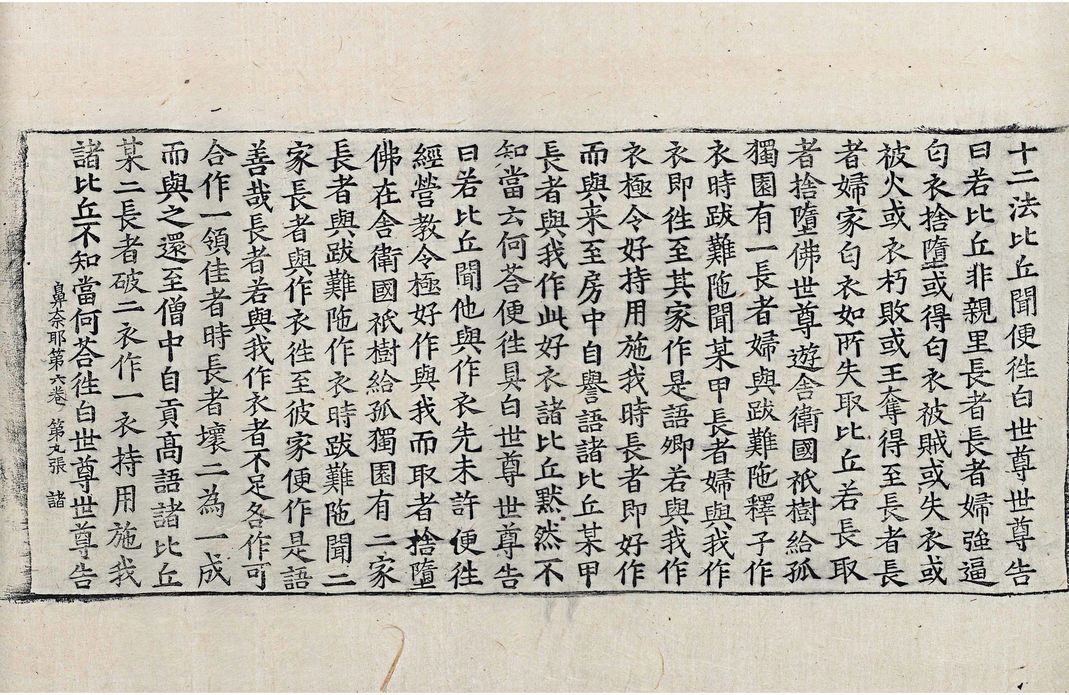 十二法比丘聞便徃白世尊世尊告
曰若比丘非親里長者長者婦強逼
匄衣捨墮或得匄衣被賊或失衣或
被火或衣朽敗或王奪得至長者長
者婦家匄衣如所失取比丘若長取
者捨墮佛世尊遊舍衛國祇樹給孤
獨園有一長者婦與跋難陁釋子作
衣時跋難陁聞某甲長者婦與我作
衣即徃至其家作是語卿若與我作
衣極令好持用施我時長者即好作
而與来至房中自譽語諸比丘某甲
長者與我作此好衣諸比丘默然不
知當云何荅便徃具白世尊世尊告
曰若比丘聞他與作衣先未許便徃
經營教令極好作與我而取者捨墮
佛在舍衛國祇樹給孤獨園有二家
長者與跋難陁作衣時跋難陁聞二
家長者與作衣徃至彼家便作是語
善哉長者若與我作衣者不足各作可
合作一領佳者時長者壞二為一成
而與之還至僧中自貢高語諸比丘
某二長者破二衣作一衣持用施我
諸比丘不知當何荅徃白世尊世尊告
鼻奈耶第六卷 第九張 諸